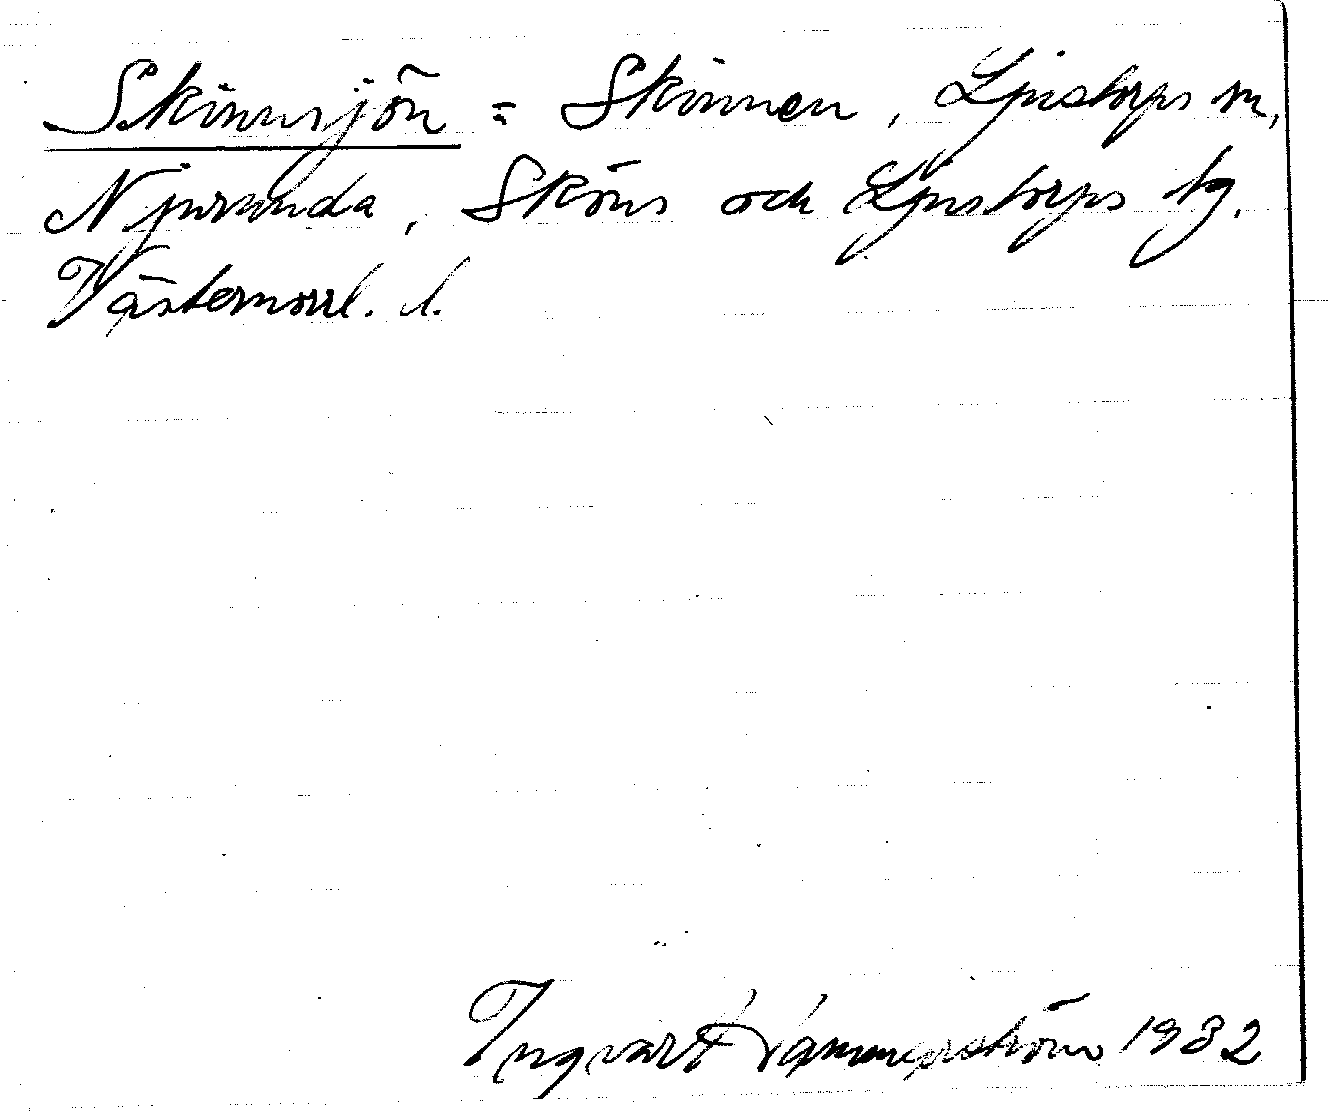 Skinnsjön = Skinnen, Ljustorps sn,
Njurunda, Sköns och Ljustorps tg.
Västernorrl. l.
Ingvar Hammarström 1932